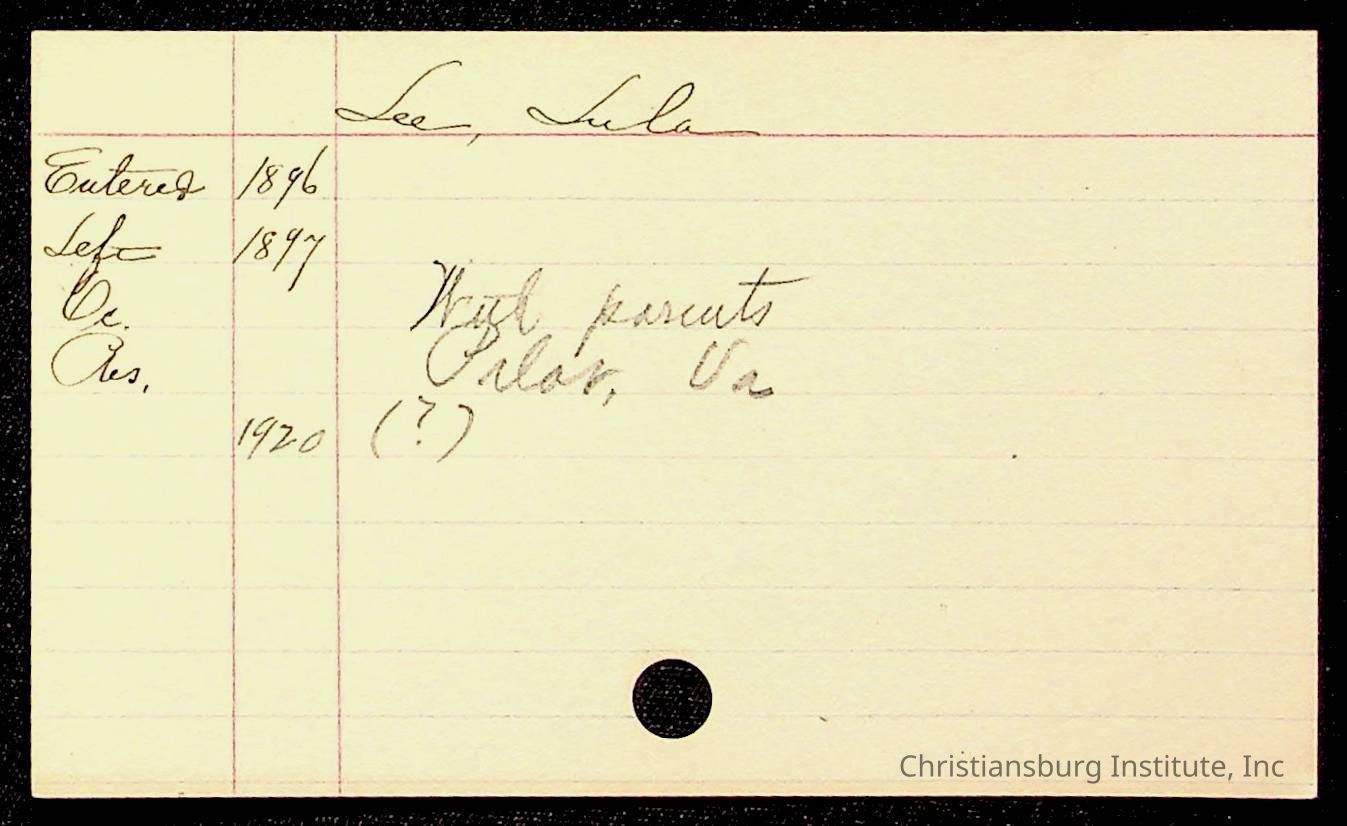 Lee, Lula
Entered 1896
Left 1897
Oc. With parents
Res. Pilot, Va
1920 (?)
Christiansburg Institute, Inc